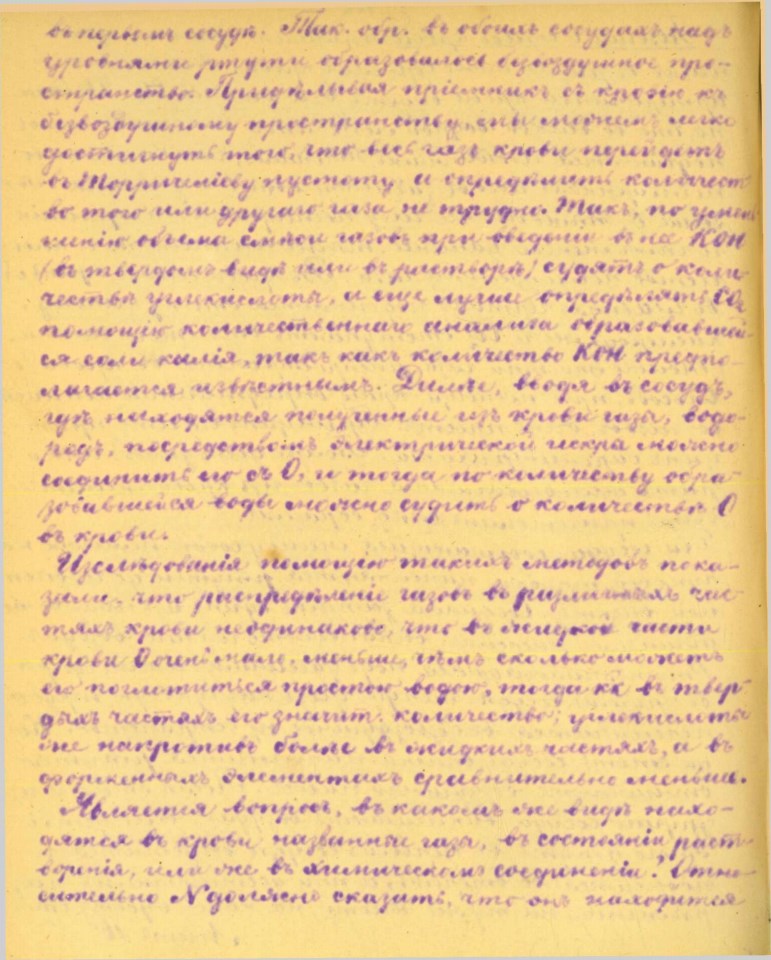 въ первомъ сосудѣ. Так. обр. въ обоихъ сосудахъ надъ
уровнями ртути образовалось безвоздушное про-
странство. Придѣлывая пріемникъ съ кровію къ
безвоздушному пространству, мы можемъ легко
достигнуть того, что весь газъ крови перейдетъ
въ Торричеліеву пустоту и опредѣлить количест-
во того или другаго газа не трудно. Такъ, по умень
шенію объема смѣси газовъ при введеніи въ нее КОН
(въ твердомъ видѣ или въ растворѣ) судятъ о коли-
чествѣ углекислоты, а еще лучше опредѣлять CO₂
помощію количественнаго анализа образовавшей-
ся соли калія, такъ какъ количество КОН предпо-
лагается извѣстнымъ. Далѣе, вводя въ сосудъ,
гдѣ находятся полученные изъ крови газы, водо-
родъ, посредствомъ электрической искры можно
соединить его съ О, и тогда по количеству обра-
зовавшейся воды можно судить о количествѣ О
въ крови.
Изслѣдованія помощію такихъ методовъ пока-
зали, что распредѣленіе газовъ въ различныхъ час-
тяхъ крови неодинаково, что въ жидкой части
крови О очень мало, меньше, чѣмъ сколько можетъ
его поглотиться простою водою, тогда кк въ твер-
дыхъ частяхъ его значит. количество; углекислоты
же напротивъ болѣе въ жидкихъ частяхъ, а въ
форменныхъ элементахъ сравнительно меньше.
Является вопросъ, въ какомъ же видѣ нахо-
дятся въ крови названные газы, въ состояніи раст-
воренія, или же въ химическомъ соединеніи? Отно-
сительно N должно сказать, что онъ находится